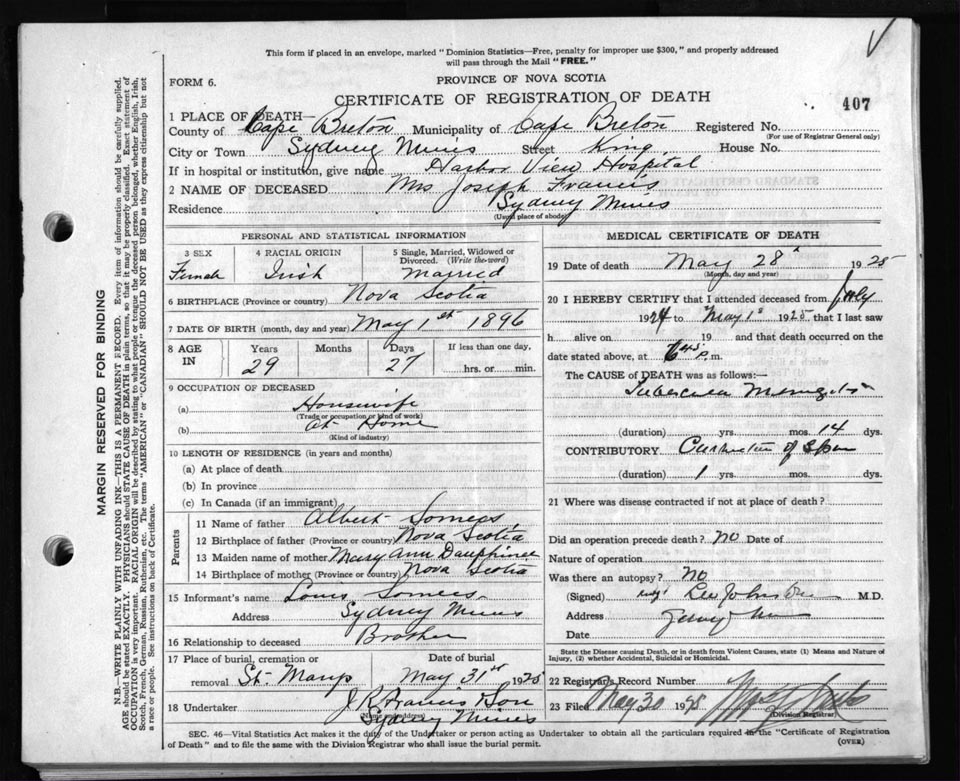 This form if placed in an envelope, marked "Dominion Statistics—Free, penalty for improper use $300," and properly addressed
will pass through the Mail "FREE."
FORM 6.
PROVINCE OF NOVA SCOTIA
CERTIFICATE OF REGISTRATION OF DEATH
407
1 PLACE OF DEATH—
County of Cape Breton Municipality of Cape Breton Registered No.
(For use of Registrar General only)
City or Town Sydney Mines Street King House No.
If in hospital or institution, give name Harbor View Hospital
2 NAME OF DECEASED Mrs Joseph Francis
Residence Sydney Mines
(Usual place of abode)
PERSONAL AND STATISTICAL INFORMATION
3 SEX
Female
4 RACIAL ORIGIN
Irish
5 Single, Married, Widowed or Divorced. (Write the word)
Married
6 BIRTHPLACE (Province or country) Nova Scotia
7 DATE OF BIRTH (month, day and year) May 1st 1896
8 AGE IN
Years Months Days If less than one day,
29 27 hrs. or min.
9 OCCUPATION OF DECEASED
(a) Housewife
(Trade or occupation or kind of work)
(b) At Home
(Kind of industry)
10 LENGTH OF RESIDENCE (in years and months)
(a) At place of death
(b) In province
(c) In Canada (if an immigrant)
Parents
11 Name of father Albert Somers
12 Birthplace of father (Province or country) Nova Scotia
13 Maiden name of mother Mary Ann Dauphinee
14 Birthplace of mother (Province or country) Nova Scotia
15 Informant's name Louis Somers
Address Sydney Mines
16 Relationship to deceased Brother
17 Place of burial, cremation or Date of burial
removal St. Marys May 31st 1925
18 Undertaker J R Francis Son
(Name and address)
Sydney Mines
MEDICAL CERTIFICATE OF DEATH
19 Date of death May 28 1925
(Month, day and year)
20 I HEREBY CERTIFY that I attended deceased from July
1924 to May 1925 that I last saw
h alive on 19 and that death occurred on the
date stated above, at p.m.
The CAUSE of DEATH was as follows:—
Tubercular
(duration) yrs. mos. 14 dys.
CONTRIBUTORY of
(duration) 1 yrs. mos. dys.
21 Where was disease contracted if not at place of death?
Did an operation precede death? No Date of
Nature of operation
Was there an autopsy? no
(Signed) M.D.
Address
Date
State the Disease causing Death, or in death from Violent Causes, state (1) Means and Nature of
Injury, (2) whether Accidental, Suicidal or Homicidal.
22 Registrar's Record Number
23 Filed May 30 1925
(Division Registrar)
SEC. 46—Vital Statistics Act makes it the duty of the Undertaker or person acting as Undertaker to obtain all the particulars required in the "Certificate of Registration
of Death" and to file the same with the Division Registrar who shall issue the burial permit.
(OVER)
MARGIN RESERVED FOR BINDING
N.B.—WRITE PLAINLY WITH UNFADING INK—THIS IS A PERMANENT RECORD. Every item of information should be carefully supplied.
AGE should be stated EXACTLY. PHYSICIANS should STATE CAUSE OF DEATH in plain terms, so that it may be properly classified. Exact statement of
OCCUPATION is very important. RACIAL ORIGIN will be described by stating to what people or tongue the deceased person belonged, whether English, Irish,
Scotch, French, German, Russian, Ruthenian, etc. The terms "AMERICAN" or "CANADIAN" SHOULD NOT BE USED as they express citizenship but not
a race or people. See instructions on back of Certificate.